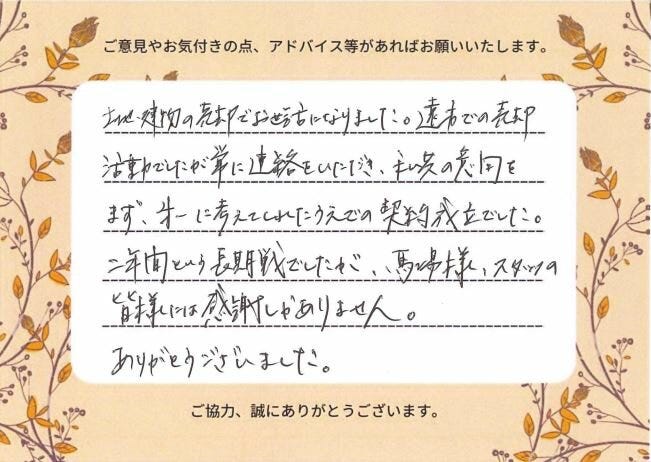 ご意見やお気付きの点、アドバイス等があればお願いいたします。
土地建物の売却でお世話になりました。遠方での売却
活動でしたが常に連絡をいただき、私共の意向を
まず、第一に考えてくれたうえでの契約成立でした。
二年間という長期戦でしたが、馬場様、スタッフの
皆様には感謝しかありません。
ありがとうございました。
ご協力、誠にありがとうございます。